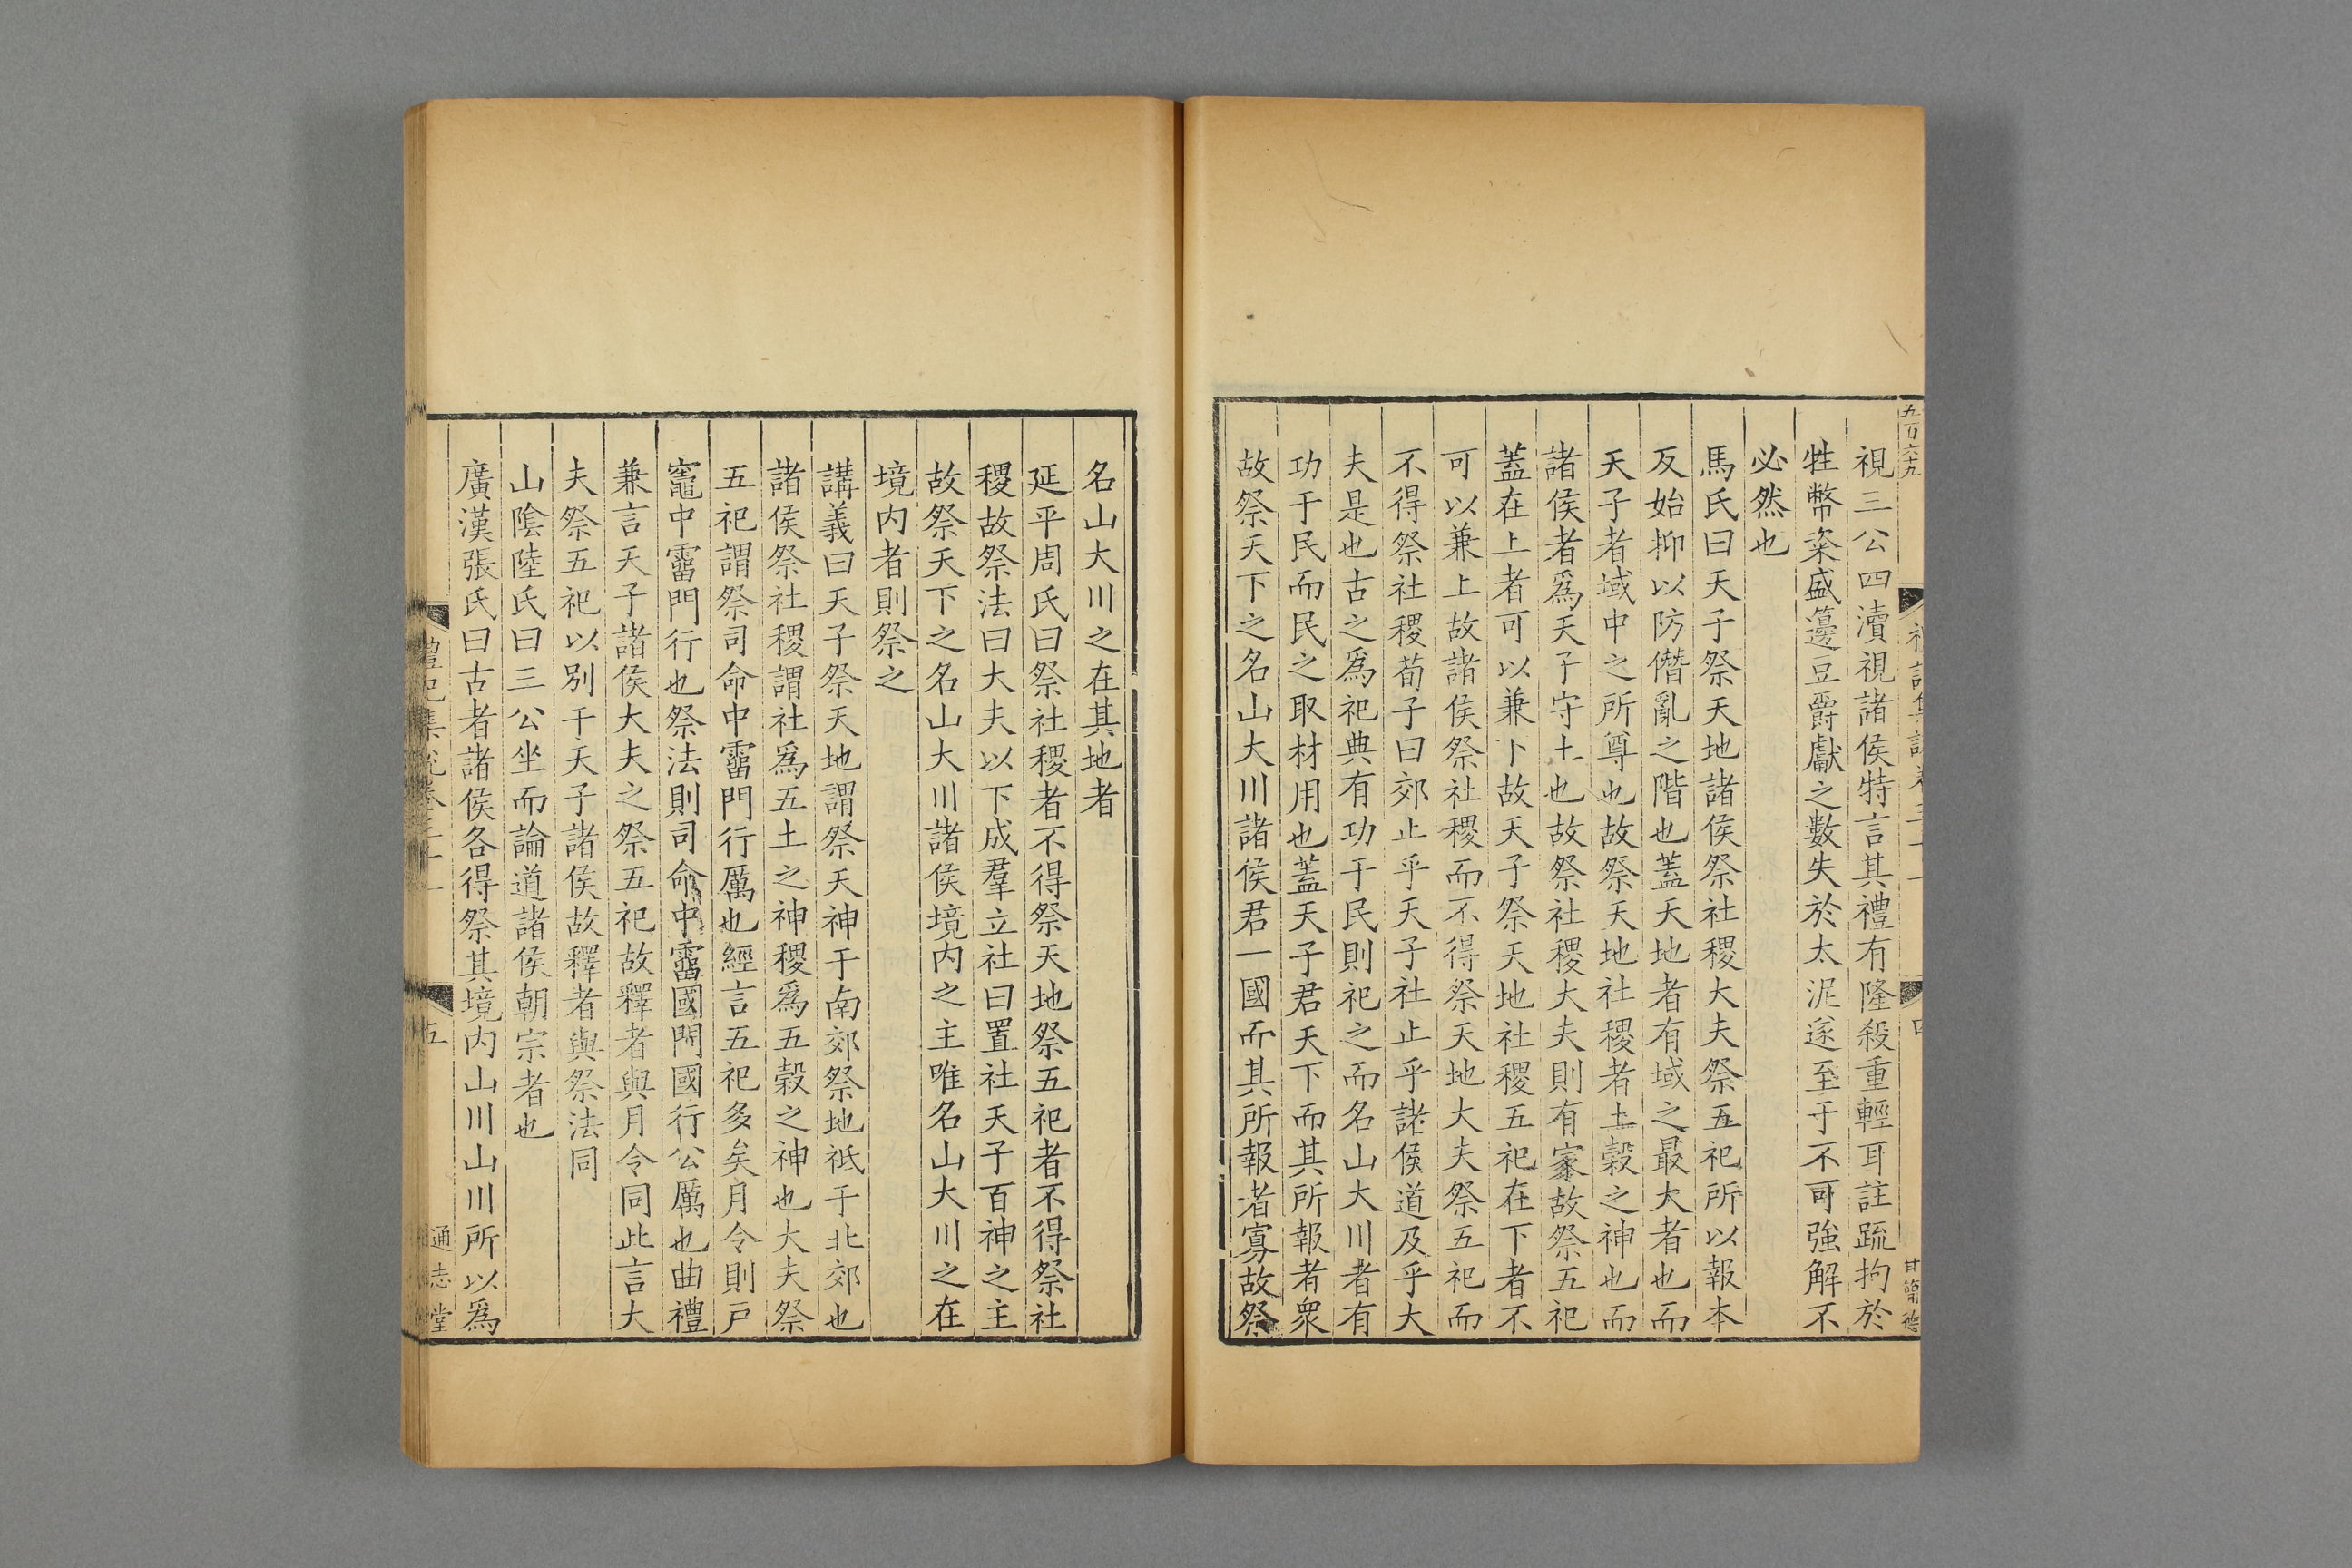 九百六十九
視三公四瀆視諸侯特言其禮有隆殺重輕耳註疏拘於
牲幣粢盛籩豆爵獻之數失於太泥遂至于不可強解不
必然也
馬氏曰天子祭天地諸侯祭社稷大夫祭五祀所以報本
反始抑以防僭亂之階也蓋天地者有域之最大者也而
天子者域中之所尊也故祭天地社稷者土穀之神也而
諸侯者爲天子守土也故祭社稷大夫則有家故祭五祀
蓋在上者可以兼下故天子祭天地社稷五祀在下者不
可以兼上故諸侯祭社稷而不得祭天地大夫祭五祀而
不得祭社稷荀子曰郊止乎天子社止乎諸侯道及乎大
夫是也古之爲祀典有功于民則祀之而名山大川者有
功于民而民之取材用也蓋天子君天下而其所報者衆
故祭天下之名山大川諸侯君一國而其所報者寡故祭
四
甘簡德
名山大川之在其地者
延平周氏曰祭社稷者不得祭天地祭五祀者不得祭社
稷故祭法曰大夫以下成羣立社曰置社天子百神之主
故祭天下之名山大川諸侯境内之主唯名山大川之在
境内者則祭之
講義曰天子祭天地謂祭天神于南郊祭地祇于北郊也
諸侯祭社稷謂社爲五土之神稷爲五穀之神也大夫祭
五祀謂祭司命中霤門行厲也經言五祀多矣月令則戸
竈中霤門行也祭法則司命中霤國門國行公厲也曲禮
兼言天子諸侯大夫之祭五祀故釋者與月令同此言大
夫祭五祀以别于天子諸侯故釋者與祭法同
山隂陸氏曰三公坐而論道諸侯朝宗者也
廣漢張氏曰古者諸侯各得祭其境内山川山川所以爲
禮記集說卷三十一
五
通志堂